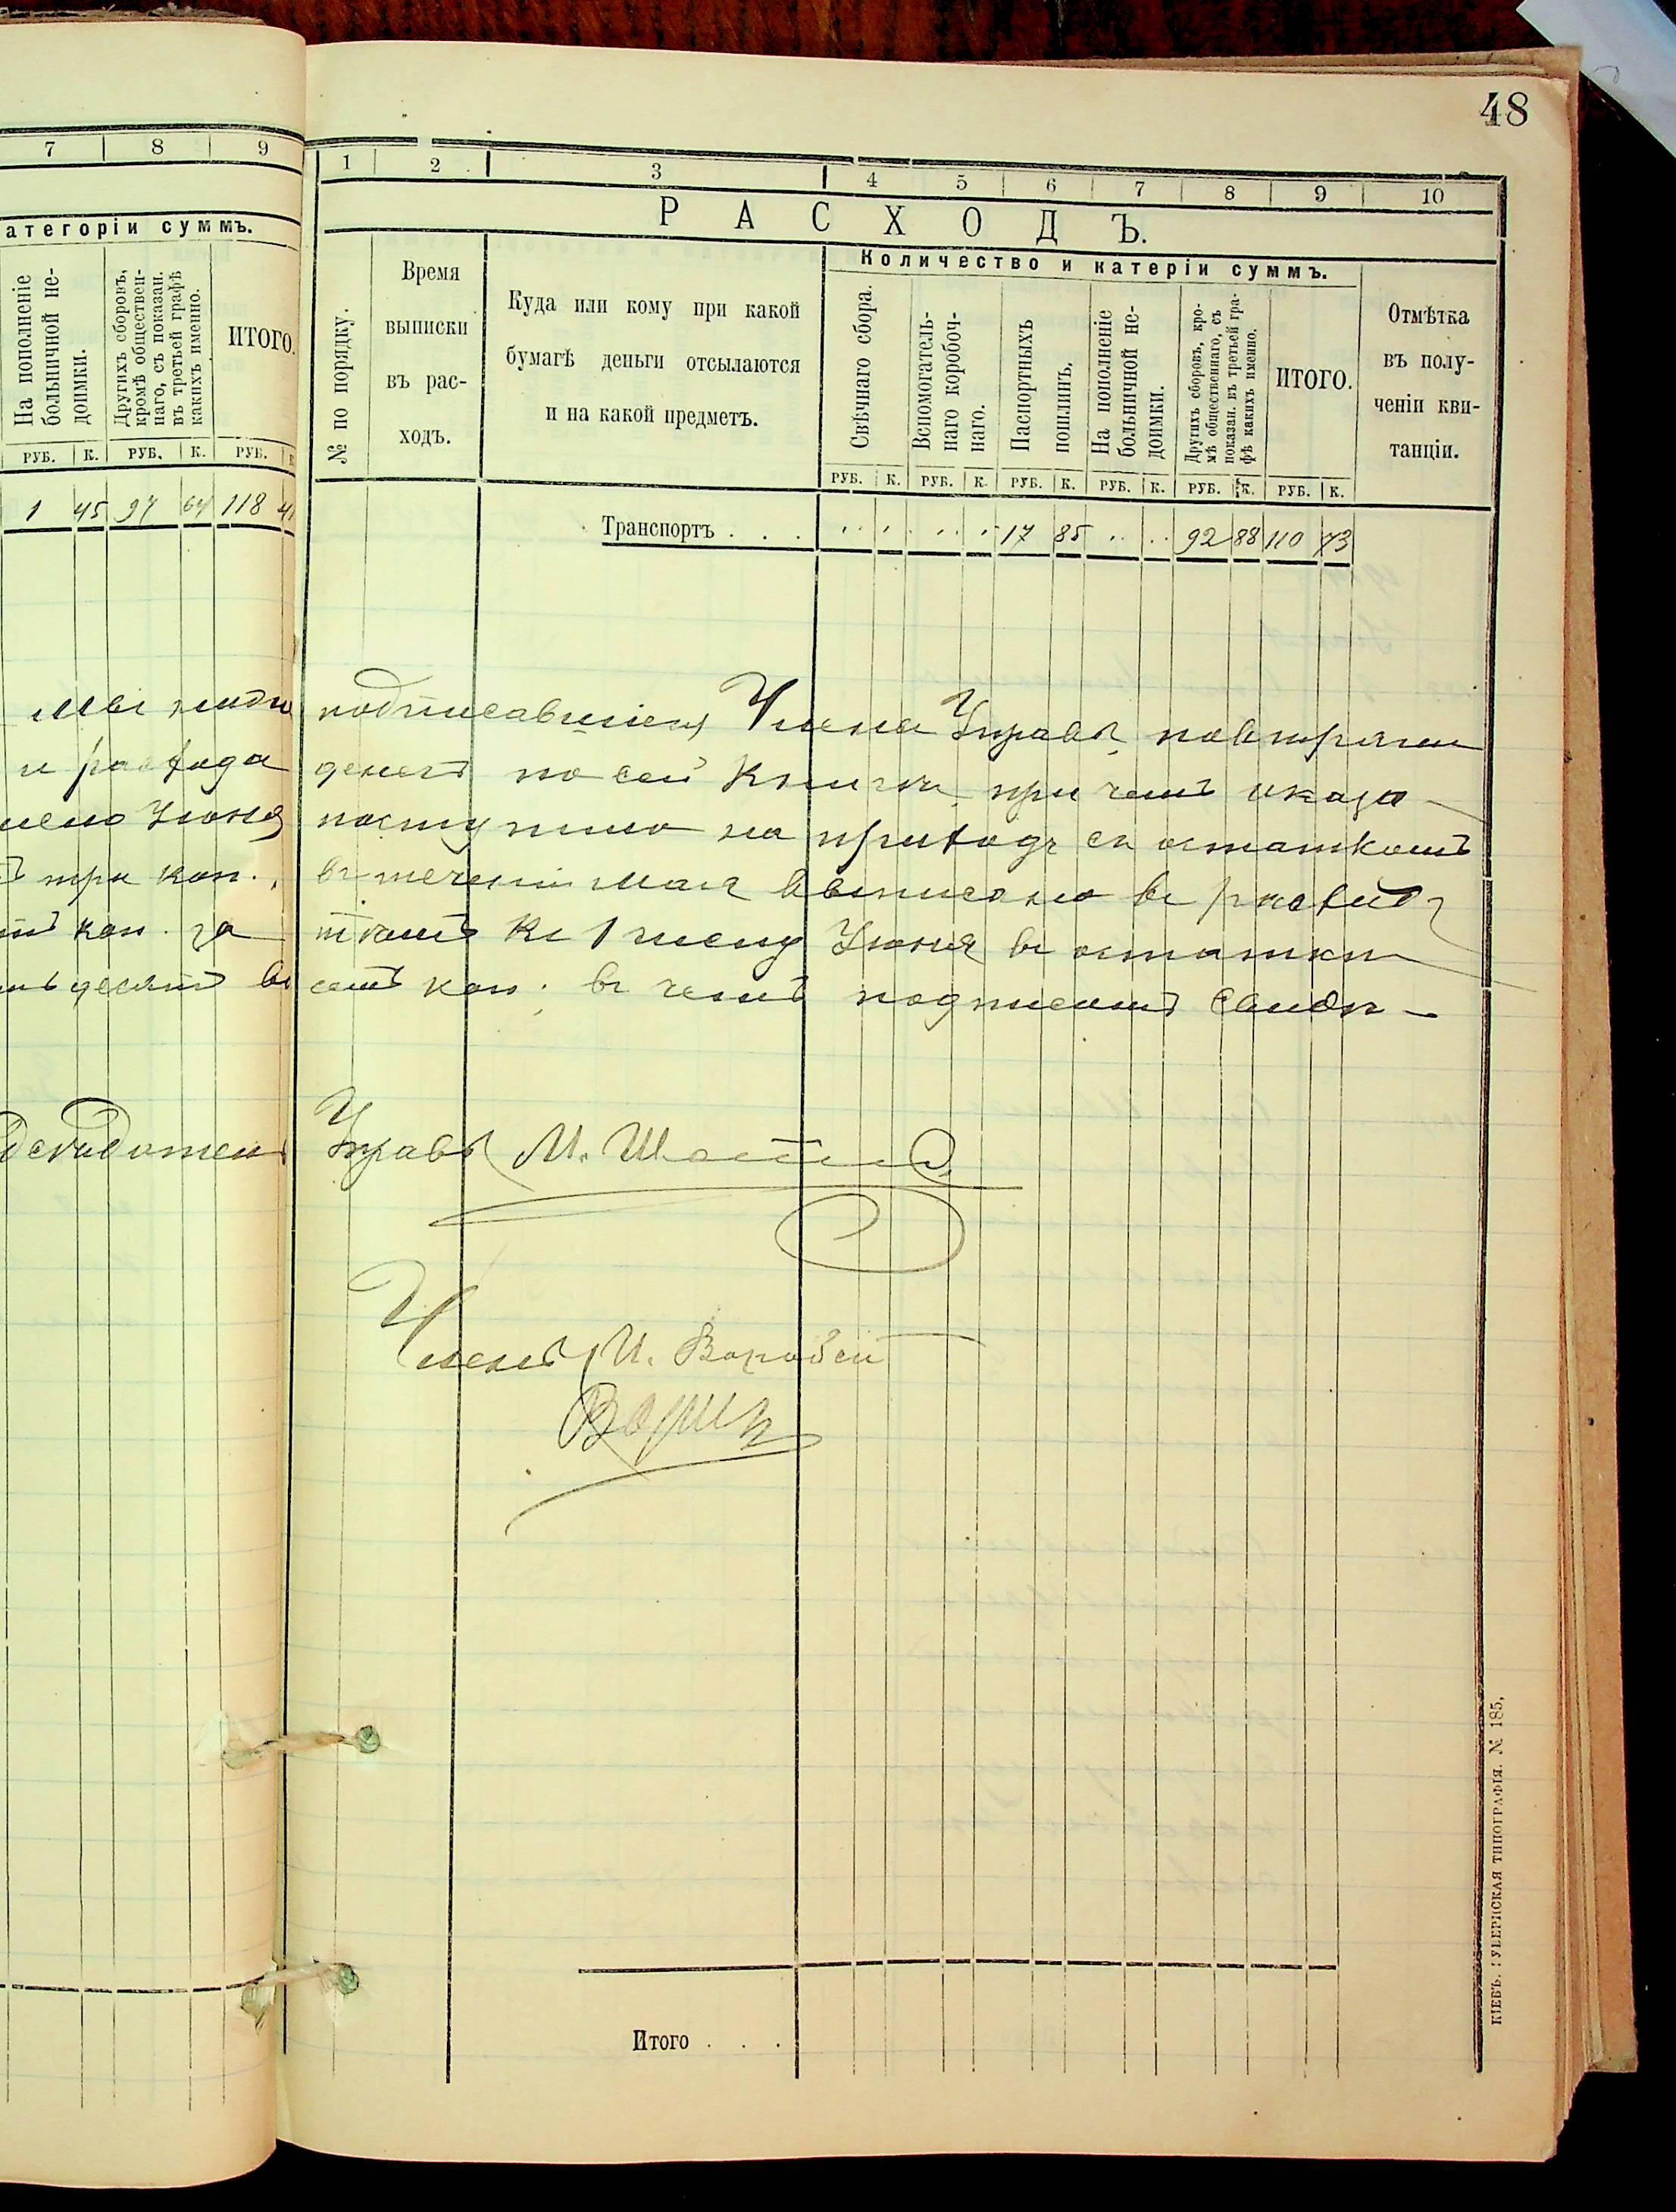 48
7 8 9
атегоріи суммъ.
На пополненіе
больничной не-
доимки.
Другихъ сборовъ,
кромѣ обществен-
наго, съ показан.
въ третьей графѣ
какихъ именно.
ИТОГО.
РУБ. К. РУБ. К. РУБ.
1 45 97 64 118 41
Мы ниже
и расхода
Іюня
три коп.
коп. за
десять во
1 2 3 4 5 6 7 8 9 10
РАСХОДЪ.
Количество и катеріи суммъ.
№ по порядку.
Время
выписки
въ рас-
ходъ.
Куда или кому при какой
бумагѣ деньги отсылаются
и на какой предметъ.
Свѣчнаго сбора.
Вспомогатель-
наго коробоч-
наго.
Паспортныхъ
пошлинъ.
На пополненіе
больничной не-
доимки.
Другихъ сборовъ, кро-
мѣ общественнаго, съ
показан. въ третьей гра-
фѣ какихъ именно.
ИТОГО.
Отмѣтка
въ полу-
ченіи кви-
танціи.
РУБ. К. РУБ. К. РУБ. К. РУБ. К. РУБ. К. РУБ. К.
Транспортъ . . . 17 85 92 88 110 73
подписавшіеся Члены Управы
денегъ по сей книгѣ, при чемъ оказа-
поступило на приходъ съ остаткомъ
въ теченіи Мая выписано въ расходъ
къ 1 числу Іюня въ остатки
семь коп. въ чемъ подписомъ свидѣ-
Управы М.
Членъ И. Воробей
Итого . . .
КІЕВЪ. ГУБЕРНСКАЯ ТИПОГРАФІЯ. № 185,